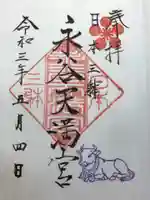 奉拝
日本三躰
永谷天満宮
令和三年五月四日